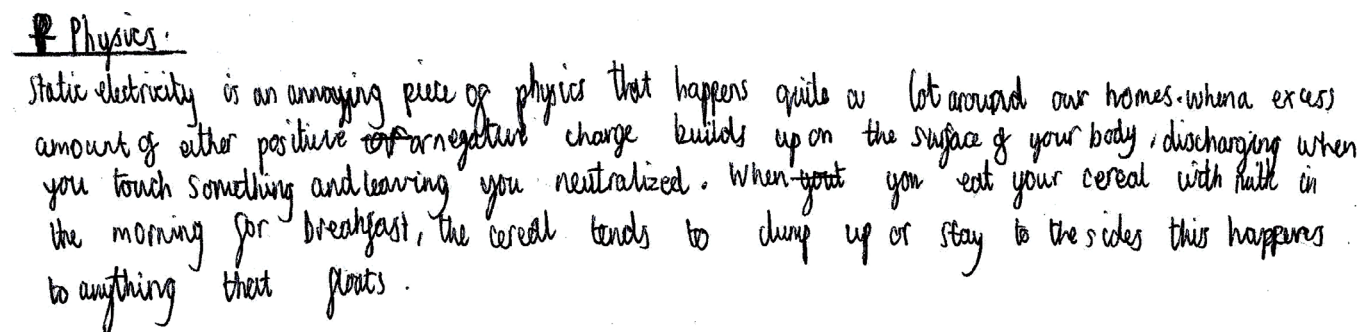 Physics.
Static electricity is an annoying piece of physics that happens quite a lot around our homes. when a excess
amount of either positive or negative charge builds up on the surface of your body, discharging when
you touch something and leaving you neutralized. When you eat your cereal with milk in
the morning for breakfast, the cereal tends to clump up or stay to the sides this happens
to anything that floats.